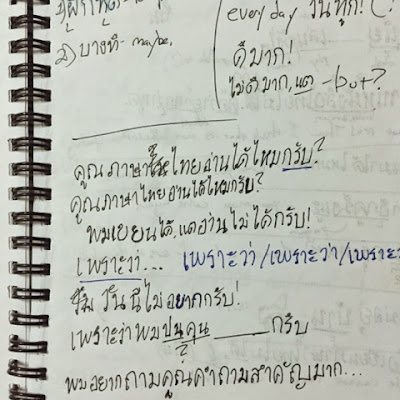 everyday วันทุก! (?
2) บางที - maybe.
ดีมาก!
ไม่ดีมาก, แต่ - but?
คุณภาษาไทยอ่านได้ไหมกรับ?
คุณภาษาไทยอ่านได้ไหมกรับ?
ผมเขยนได้, แตอ่านไม่ได้กรับ!
เพราะว่า... เพราะว่า/เพราะว่า/เพราะ
วันนี้ไม่อยากกรับ!
เพราะว่าผมปนคุน ____ กรับ
?
ผมอยากถามคุณคำถามสำคัญมาก...